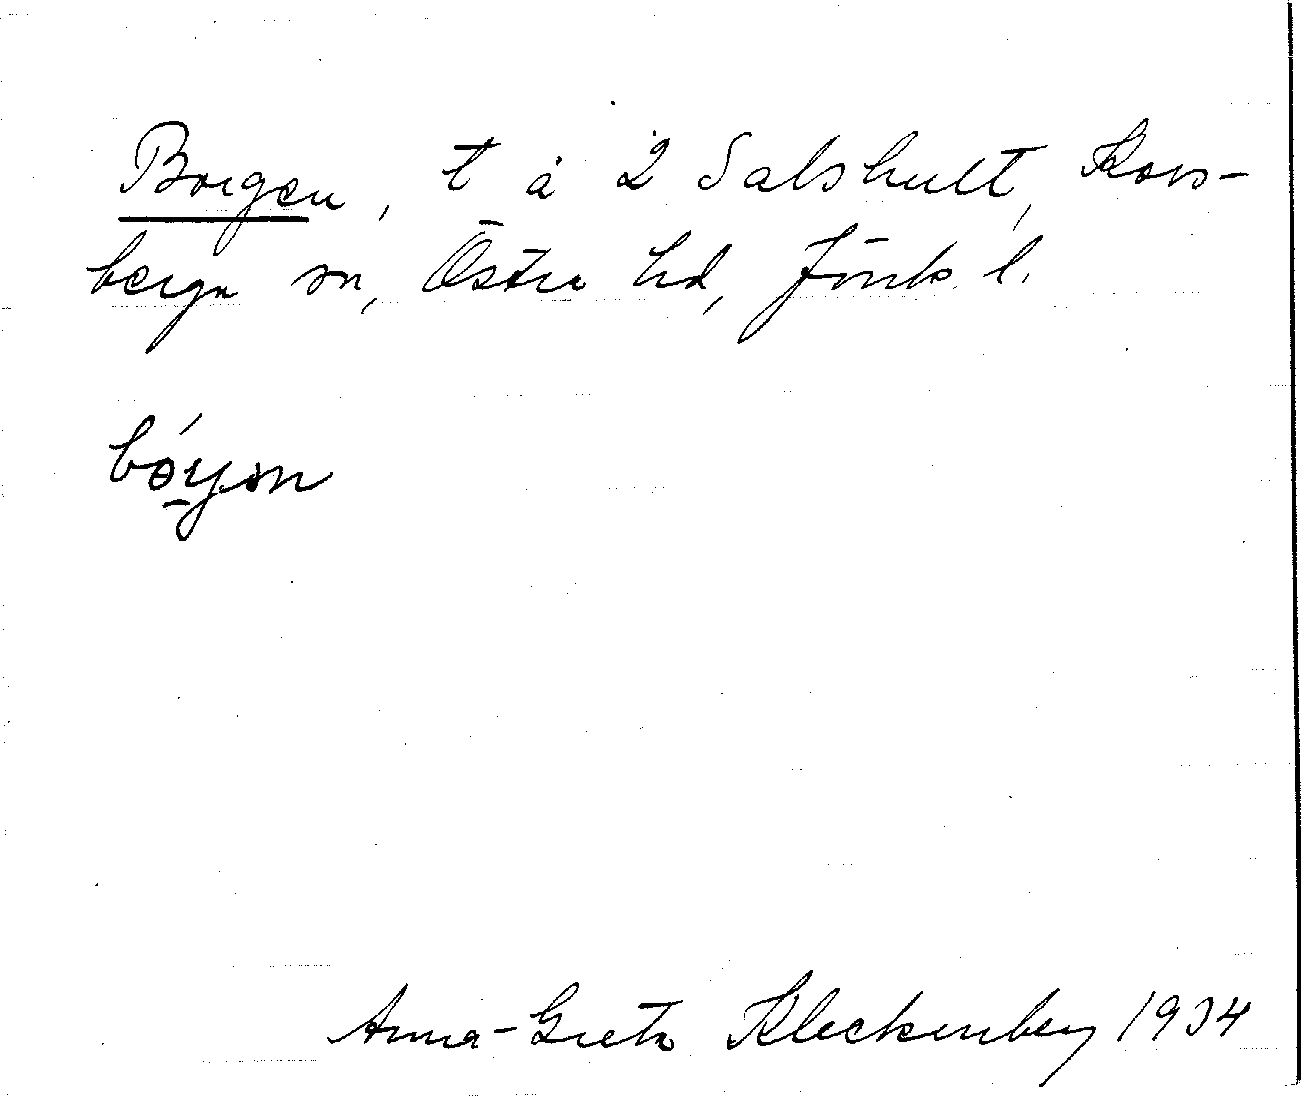 Borgen, t å 2 Salshult, Kors-
berga sn, Östra hd, Jönk l.
bóyən
Anna-Greta Kleckenberg 1934